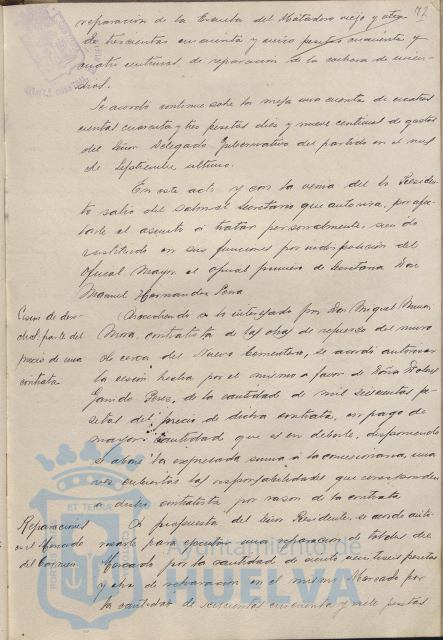 72
reparación de la Escuela del Matadero viejo y otra
de trescientas cincuenta y cinco pesetas cincuenta y
cuatro centimos de reparacion de la cochera de incen-
dios.
Se acordó continue sobre la mesa una cuenta de cuatro
cientas cuarenta y tres pesetas diez y nueve centimos de gastos
del Señor Delegado Gubernativo del partido en el mes
de Septiembre ultimo.
En este acto y con la venia del Sr Presiden-
te salio del Salon el Secretario que autoriza, por afec-
tarle el asunto á tratar personalmente, siendo
sustituido en sus funciones por indisposición del
Oficial Mayor, el oficial primero de Secretaria Don
Manuel Hernandez Pena
Cesion de dere-
chos parte del
precio de una
contrata
Accediendo a lo interesado por Don Miguel
Mora, contratista de las obras de repuesto del muro
de cerca del Nuevo Cementerio, se acordó autorizar
la cesión hecha por el mismo á favor de Doña Dolores
Garrido Perez, de la cantidad de mil seiscientas pe-
setas del precio de dicha contrata, en pago de
mayor cantidad que es en deberle, disponiendo
se abone la expresada suma á la concesionaria, una
vez cubiertas las responsabilidades que correspondan
a dicho contratista por razon de la contrata
Reparaciones
en el Mercado
del Carmen
A propuesta del Señor Presidente, se acordó auto-
rizarle para ejecutar una reparacion de toldos del
Mercado por la cantidad de ciento veintiseis pesetas
y otra de reparación en el mismo Mercado por
la cantidad de seiscientas cincuenta y siete pesetas
Ayuntamiento de
HUELVA